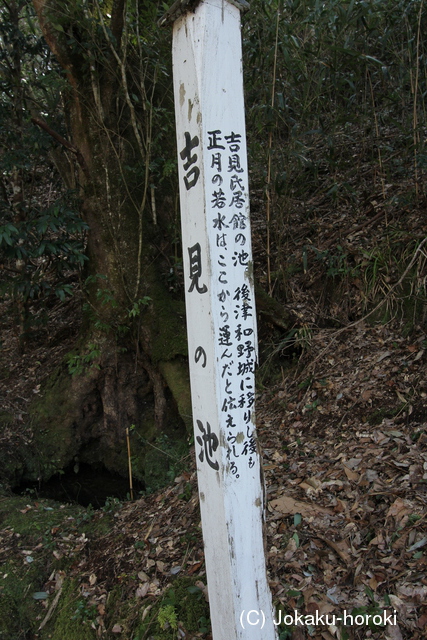 吉見の池
吉見氏居館の池 後津和野城に移りし後も
正月の若水は、ここから運んだと伝えられる。
(C) Jokaku-horoki